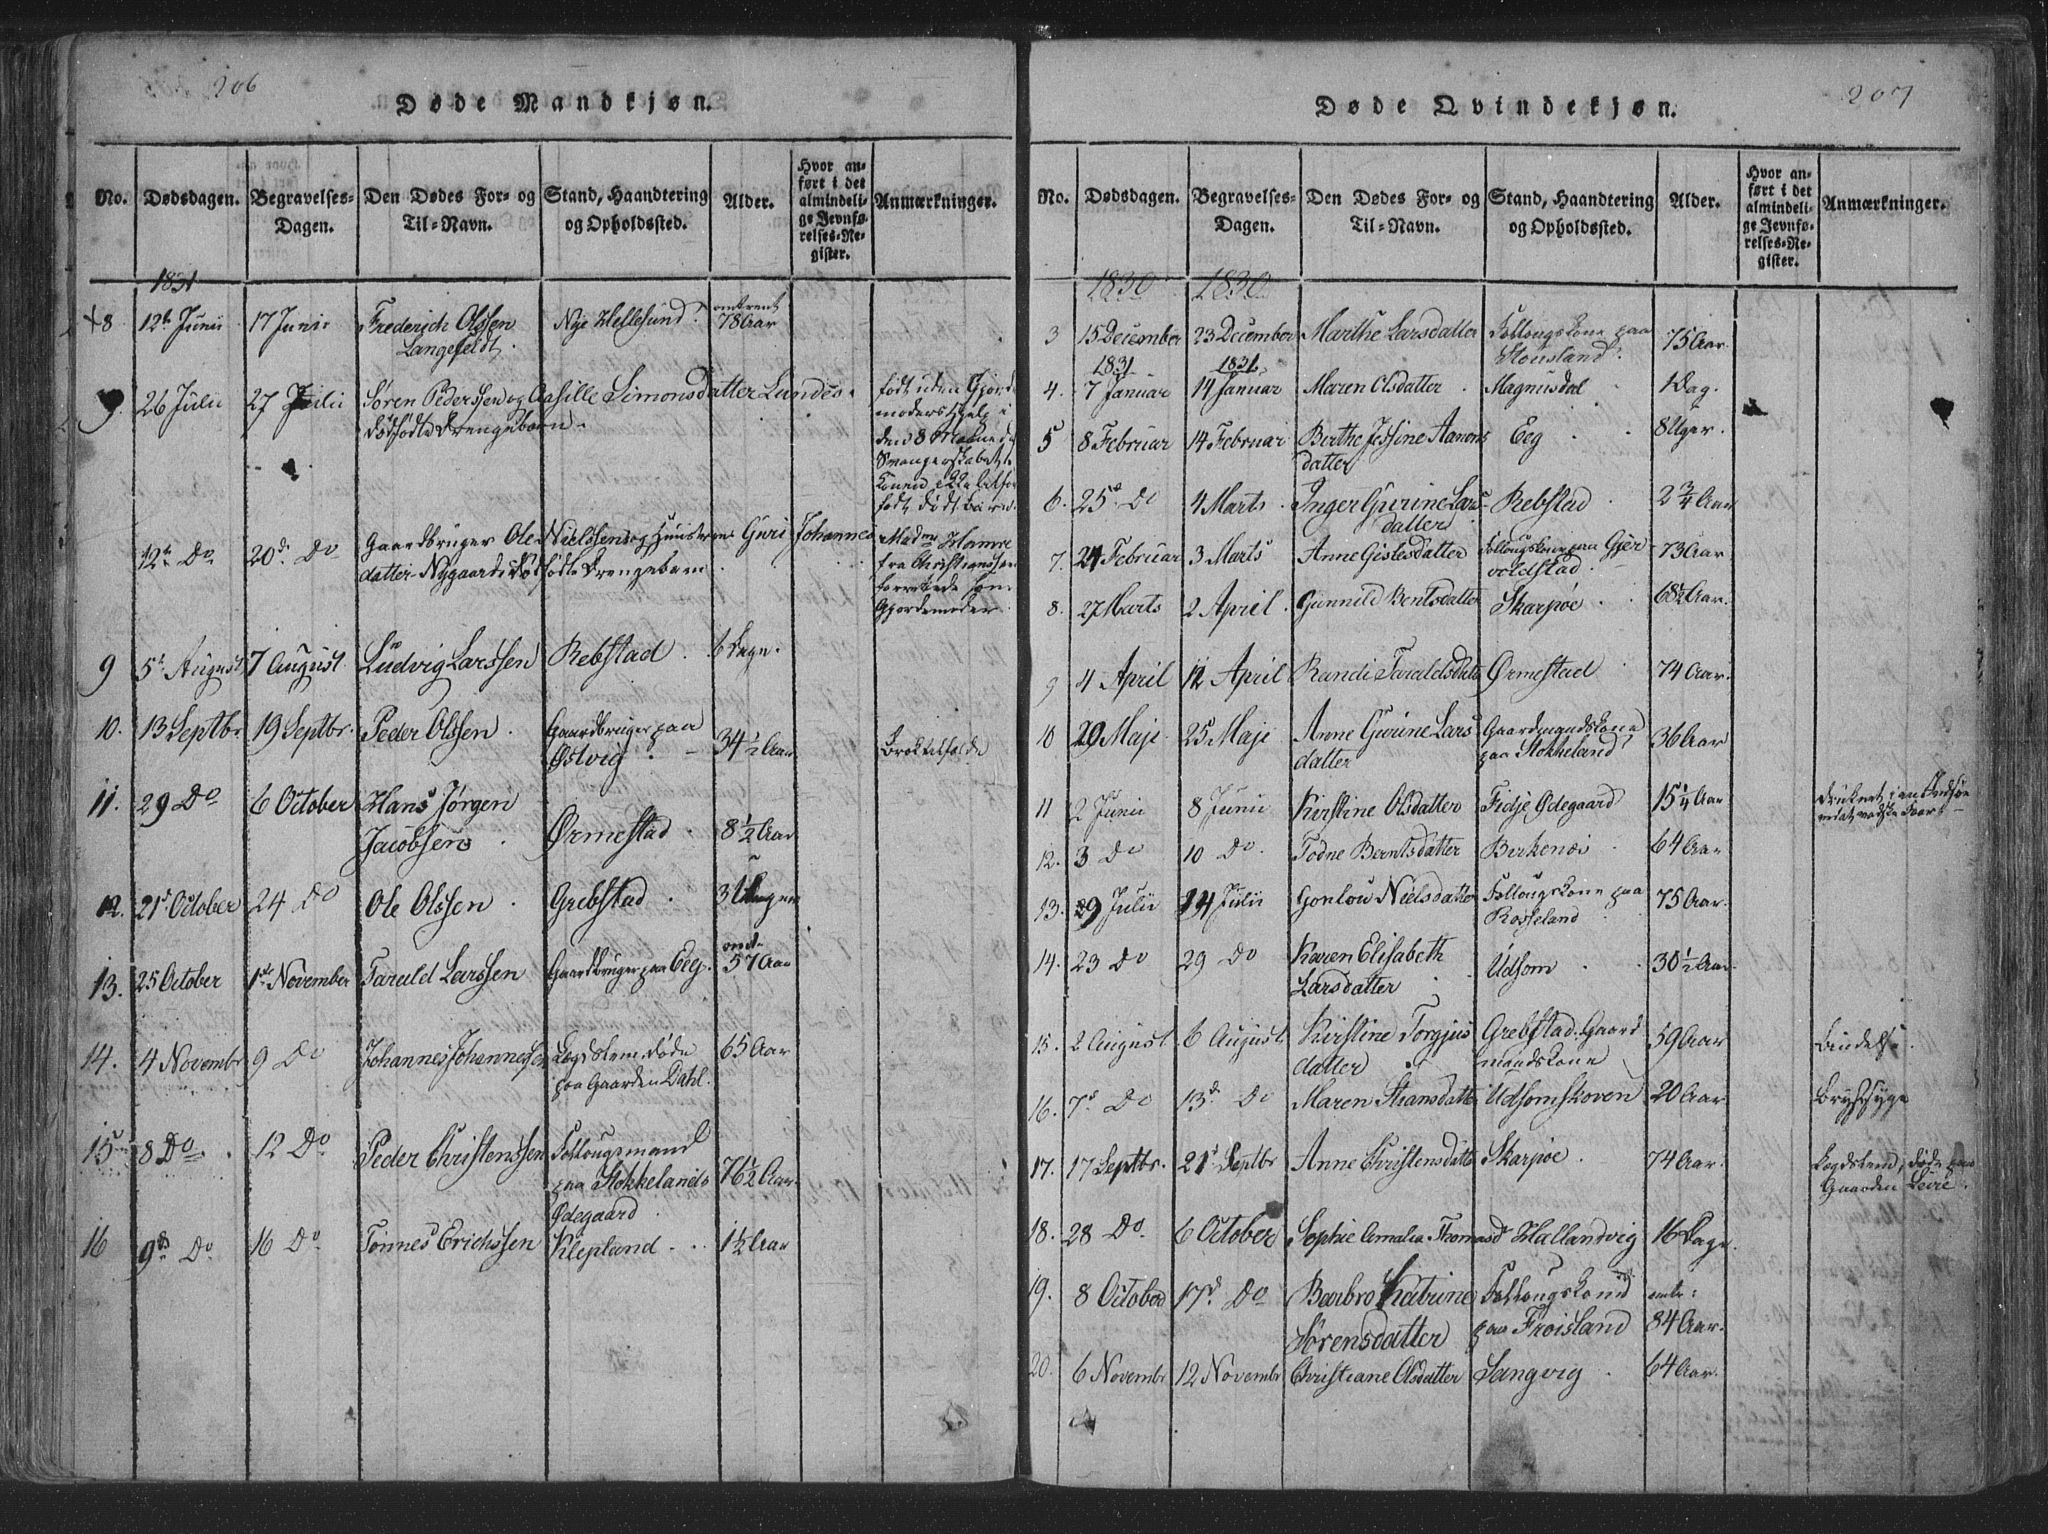 206
Døde Mandkjøn.
No.
Dødsdagen.
Begravelses-
Dagen.
Den Dødes For- og
Til-Navn.
Stand, Haandtering
og Opholdssted.
Alder.
Hvor an-
ført i det
almindeli-
ge Jevnfø-
relses-Re-
gister.
Anmærkninger.
1831
8 12t Junii 17 Junii Frederich Olssen Nye Hellesund omtrent 78 Aar
Langefeldt.
9. 26 Julii 27 Julii Søren Pedersen og Aasille Simonsdatter Lundes
dødfødte Drengebarn
født uden Gjorde
moders Hjelp i
den 8 Maaned
Svangerskabet
Konen
født dødt barn
12te Do 20de Do Gaardbruger Ole Nielssens og Hustrues Guri Johannes
datter Nygaards dødfødte Drengebarn
Madme Hamre
fra Christianssan
forrettede som
Gjordemoder
9 5t August 7 August Ludvig Larssen Rebstad 6 Dage.
10. 13 Septbr 19 Septbr. Peder Olssen. Gaardbruger paa
Østvig 34½ Aar
11. 29 Do 6 October Hans Jørgen
Jacobsen Ørmestad 8½ Aar
12. 21d October 24 Do Ole Olssen. Grebstad. 3 Uger
13. 25 October 1ste November Tarald Larssen Gaardbruger paa Eeg. omt. 57 Aar
14. 4 Novembr 9 Do Johannes Johannesen Lægdslem, døde 65 Aar
paa Gaarden Dahl.
15 8 Do. 12 Do Peder Christenssen Follougsmand
paa Stokkelands 76½ Aar
Ødegaard.
16 9de Do 16 Do Tønnes Erichssen Klepland 1½ Aar
207
Døde Qvindekjøn.
No.
Dødsdagen.
Begravelses-
Dagen.
Den Dødes For- og
Til-Navn.
Stand, Haandtering
og Opholdssted.
Alder.
Hvor an-
ført i det
almindeli-
ge Jevnfø-
relses-Re-
gister.
Anmærkninger.
1830 1830
3 15 December 23 December Marthe Larsdatter Follougskone paa 75 Aar.
Stousland.
1831 1831
4. 7 Januar 14 Januar Maren Olsdatter. Magnusdal 1 Dag.
5 8 Februar 14 Februar Berthe Jessine Aanons Eeg 8 Uger.
datter
6. 25d Do 4 Marts Inger Gurine Lars Rebstad 2¾ Aar
datter
7. 24 Februar 3 Marts Anne Gislesdatter Follougskone paa Gjer 73 Aar
voldstad
8. 27 Marts 2 April. Gunnild Berntsdatter Skarpøe 68½ Aar.
9 4 April 12 April Randi Taraldsdatter Ørmestad 74 Aar.
10 20 Maji 25 Maji Anne Gurine Lars Gaardmandskone 36 Aar
datter paa Stokkeland
11 2 Junii 8 Junii Kirstine Olsdatter Fidje Ødegaard 15¼ Aar
12. 3 Do 10 Do. Todne Berntsdatter Birkenæs 64 Aar
13. 9 Julii 14 Julii Gonlou Nielsdatter Follougskone paa 75 Aar.
Rosseland
14. 23 Do 29 Do Karen Elisabeth
Larsdatter Udsom 30½ Aar.
15. 2 August 6 August Kirstine Torgjus Grebstad. Gaard 59 Aar
datter mandskone
16. 7d Do 13d Do Maren Hansdatter Udsomskoven 20 Aar Brystsyge
17. 17 Septbr. 21d Septbr Anne Christensdatter Skarpøe. 74 Aar. Lægdslem, døde paa
Gaarden
18. 28 Do. 6 October Sophie Amalia Thomasd Hallandvig 16 Dage.
19. 8 October 17d. Do Barbro Katrine Follougskone omtr:
Sørensdatter paa Frøisland 84 Aar.
20. 6 Novembr 12 Novembr Christiane Olsdatter Langvig. 64 Aar.